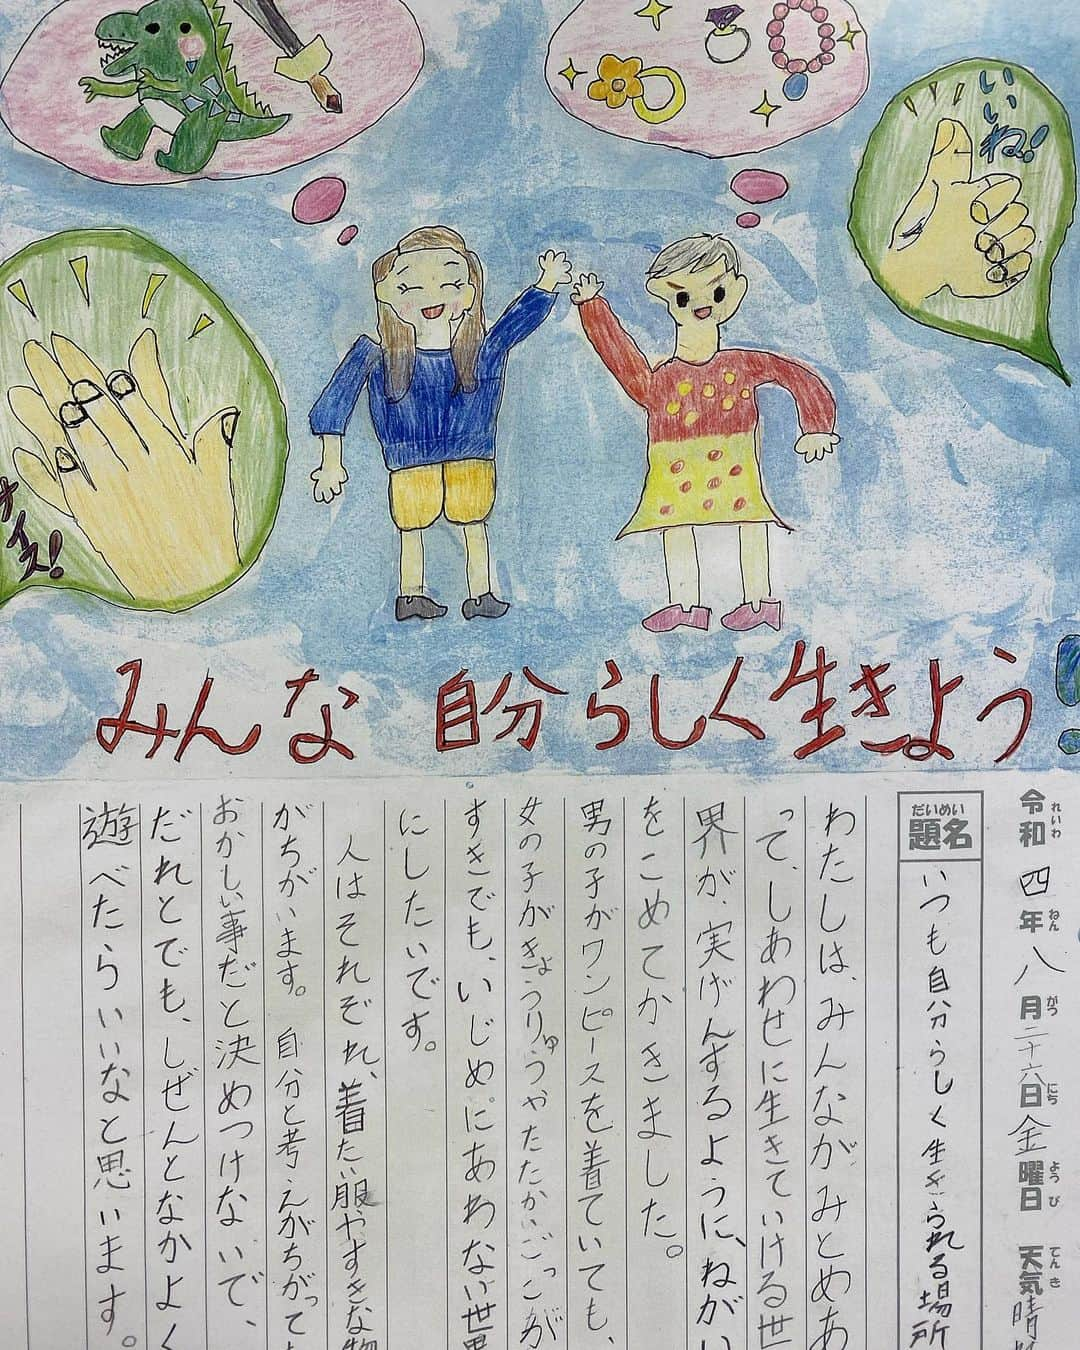 いいね!
ナイス!
みんな 自分らしく生きよう!
令和四年八月二十六日金曜日 天気晴
れいわ ねん がつ にち ようび てんき
題名 いつも自分らしく生きられる場所
だいめい
わたしは、みんながみとめあ
って、しあわせに生きていける世
界が、実げんするように、ねがい
をこめてかきました。
男の子がワンピースを着ていても、
女の子がきょうりゅうやたたかいごっこが
すきでも、いじめにあわない世界
にしたいです。
人はそれぞれ、着たい服やすきな物
がちがいます。自分と考えがちがって
おかしい事だと決めつけないで、
だれとでも、しぜんとなかよく
遊べたらいいなと思います。